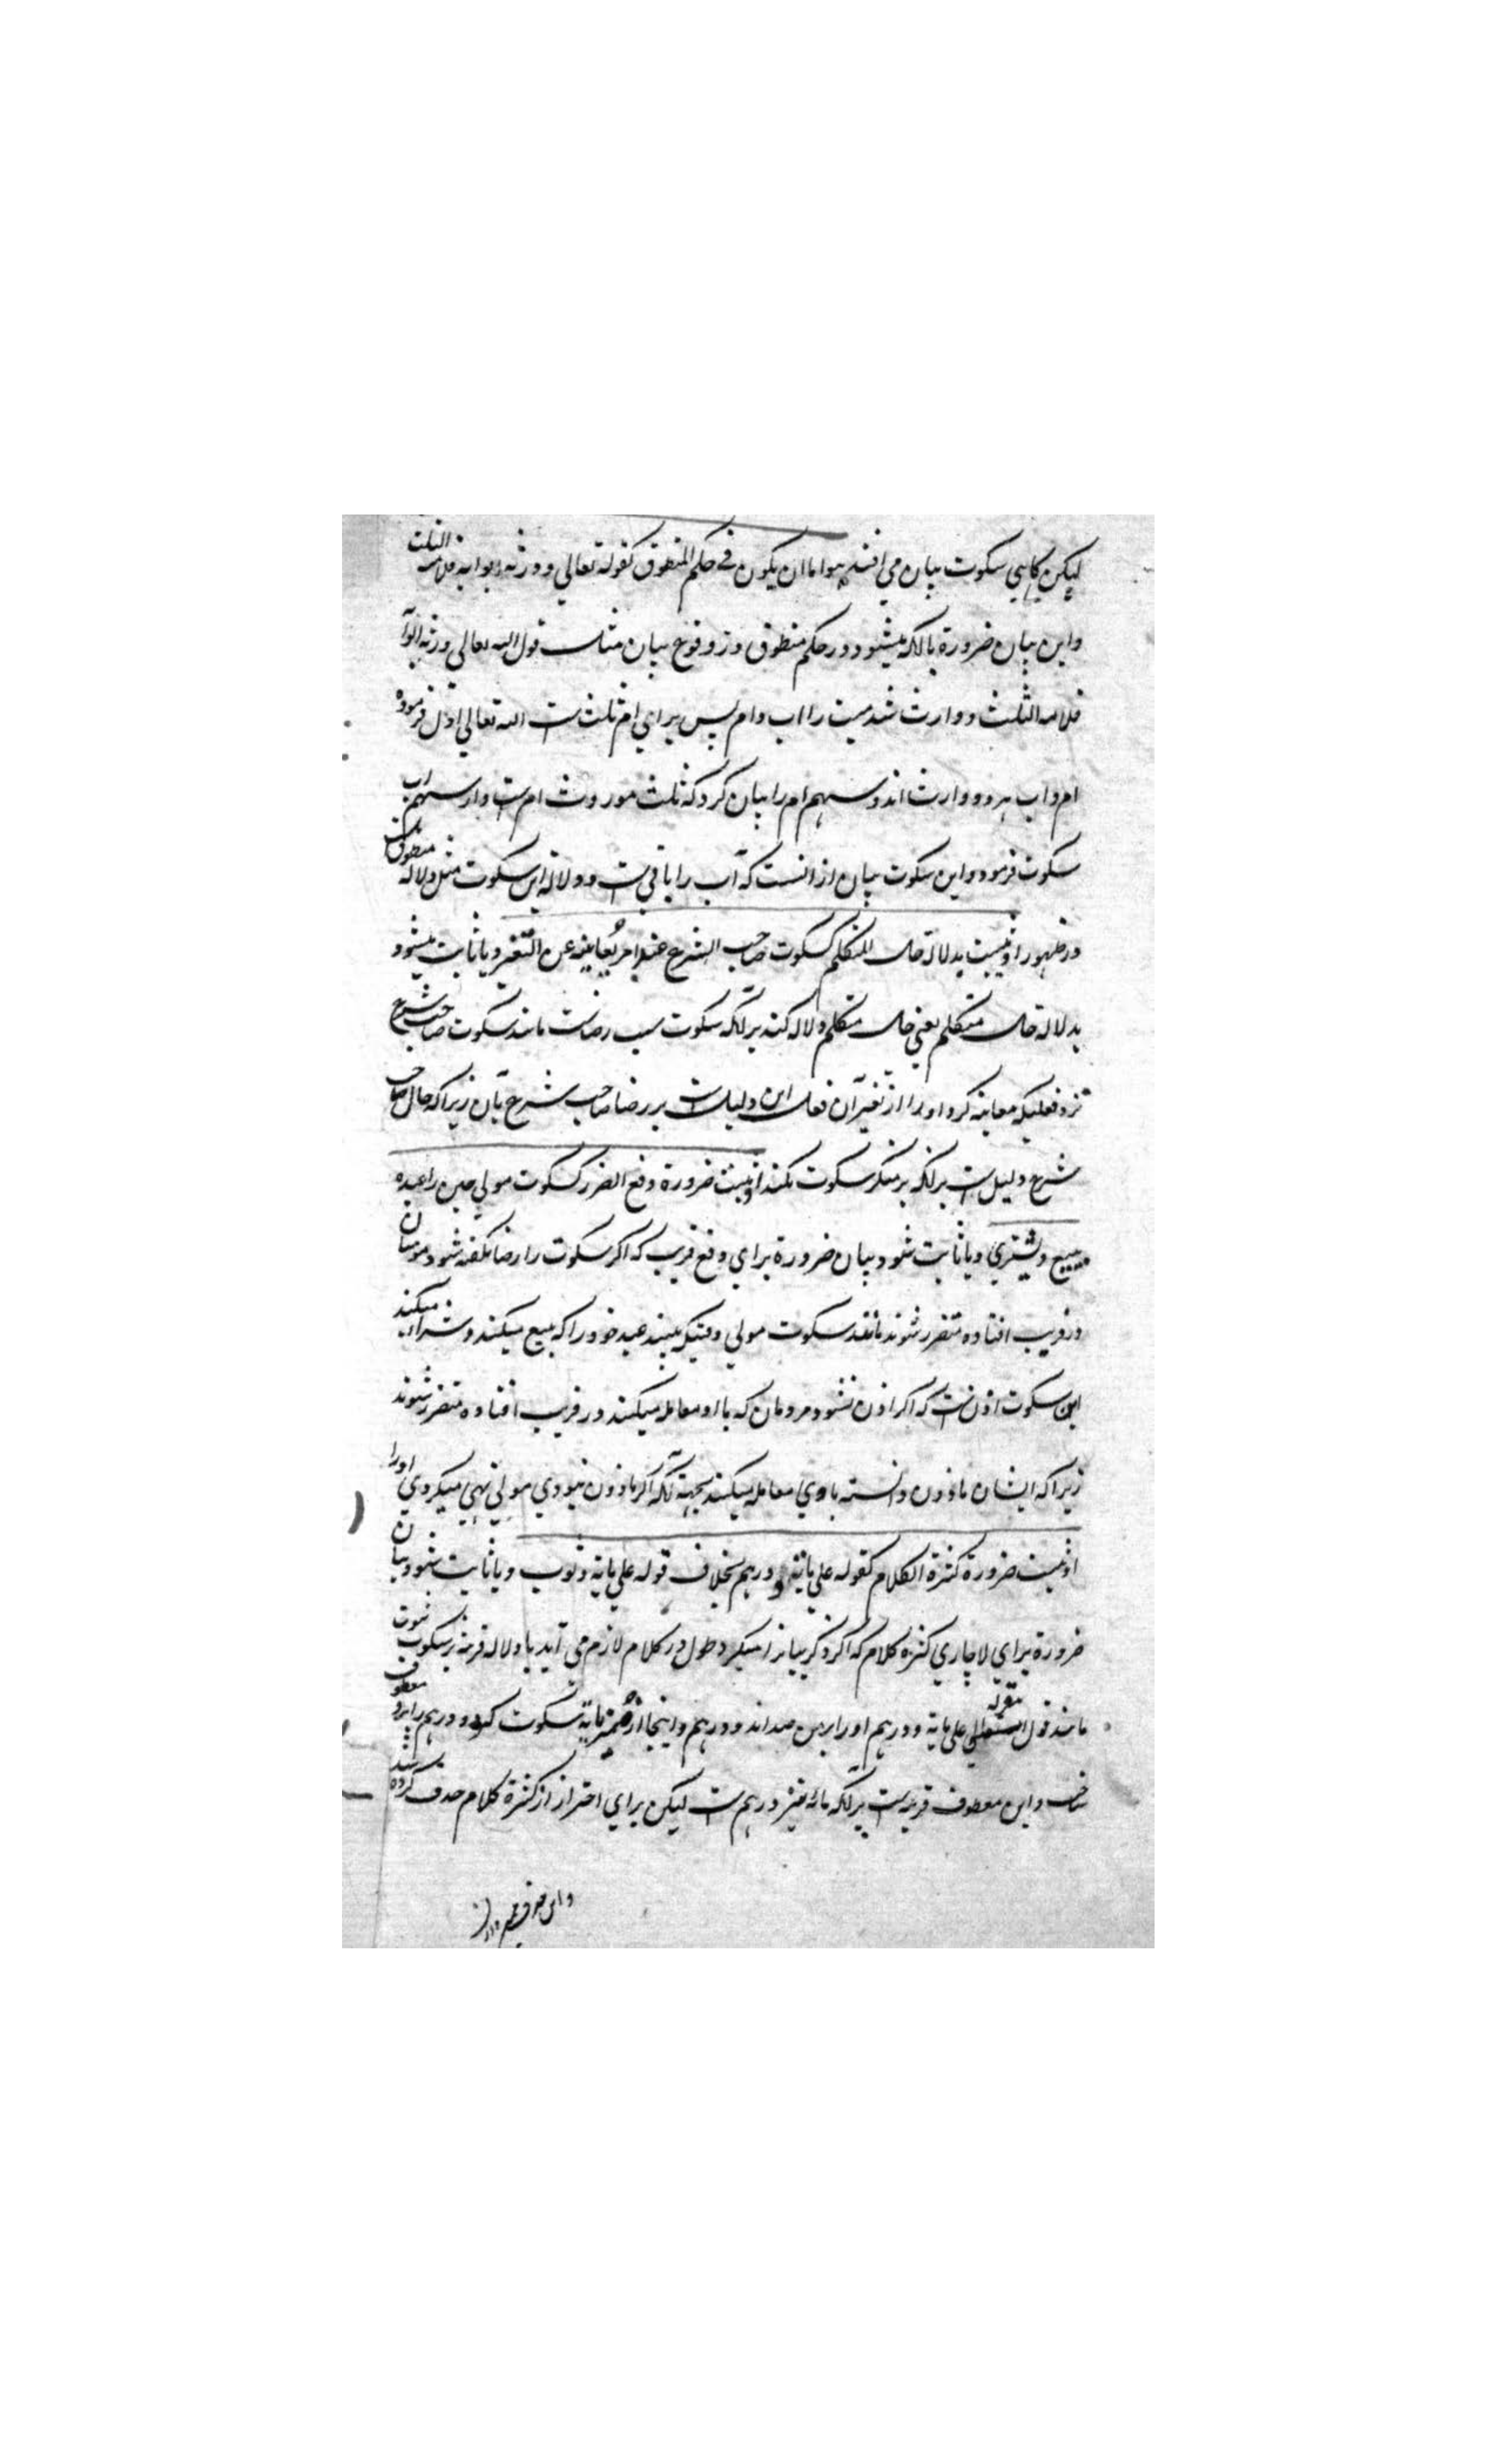 لیکن گاهی سکوت بیان می افتد وهو اما ان یکون فی حکم المنطوق کقوله تعالی وورثه ابواه فلامه الثلث
واین بیان ضرورة بالکه میشود در حکم منطوق در وقوع بیان مثل قول الله تعالی ورثه ابواه
فلامه الثلث و وارث شد میت را اب و ام پس برای ام ثلث ست الله تعالی اول فرموده
ام و اب هر دو وارث اند و سهم ام را بیان کرد که ثلث موروث ام ست و از سهم اب
سکوت فرمود و این سکوت بیان از انست که اب را باقی ست و دلالة این سکوت مثل دلالة منطوق ست
در ظهور او یثبت بدلالة حال المتکلم کسکوت صاحب الشرع عند امر یعاینه عن التغیر و یا ثابت میشود
بدلالة حال متکلم یعنی حال متکلم دلالة کند برآنکه سکوت سبب رضاست مانند سکوت صاحب شرع
نزد فعلیکه معاینه کرد او را از تغیر آن فعل این دلیل ست بر رضا صاحب شرع بآن زیراکه حال صاحب
شرع دلیل ست برآنکه بر منکر سکوت نکند او یثبت ضرورة دفع الضرر کسکوت مولی حین را عبده
یبیع ویشتری و یا ثابت شود بیان ضرورة برای دفع فریب که اگر سکوت را رضا نگفته شود مردمان
در فریب افتاده متضرر شوند مانند سکوت مولی وقتیکه بیند عبد خود را که بیع میکند و شراء میکند
این سکوت اذن ست که اگر اذن نشود مردمان که با او معامله میکنند در فریب افتاده متضرر شوند
زیراکه ایشان ماذون دانسته با وی معامله میکنند بجهة آنکه اگر ماذون نبودی مولی نهی میکردی او را
او یثبت ضرورة کثرة الکلام کقوله علی مایة و درهم بخلاف قوله علی مایة و ثوب و یا ثابت شود بیان
ضرورة برای لاچاری کثرة کلام که اگر ذکر بیان را میکرد طول در کلام لازم می آید با دلالة قرینه بر سکوت
مانند قول علی مایة و درهم او را بر من صد اند و درهم و اینجا از ممیز مایة سکوت کرد و درهم را برو معطوف
ساخت و این معطوف قرینه ست برآنکه مائة نیز درهم ست لیکن برای احتراز از کثرة کلام حذف کرده شد